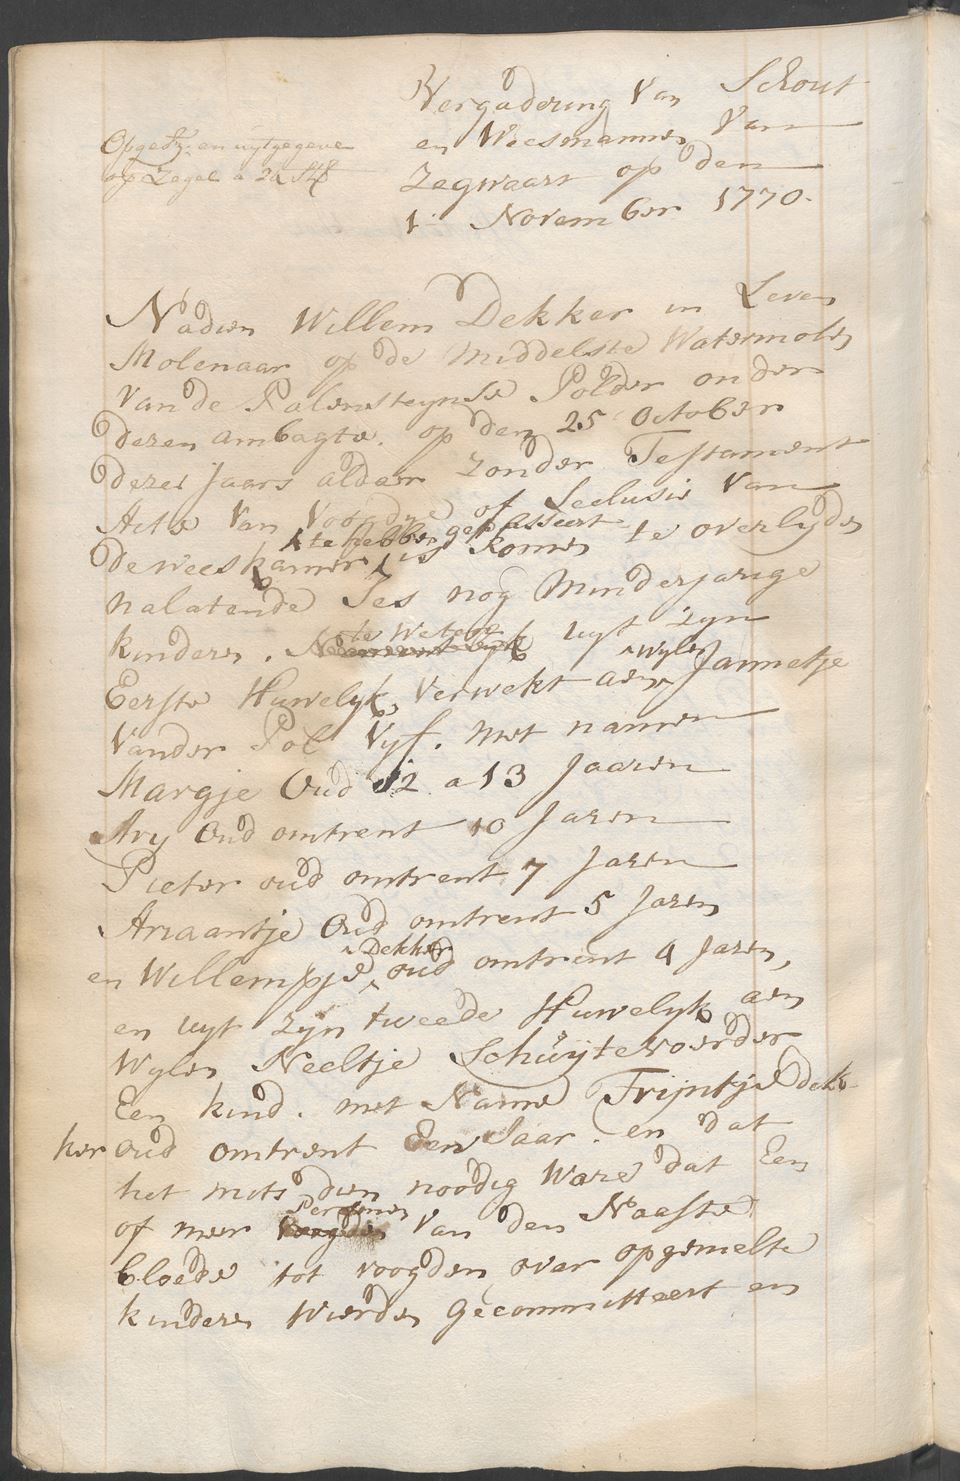 Vergadering Van Schout
en Weesmannen Van
Zegwaart op den
1.e November 1770.
Opgesz: en uytgegeve
op Zegel a 24 St
Nadien Willem Dekker in Leven
Molenaar op de Middelste Watermolen
Van de Palensteynse Polder onder
dezen ambagte. op den 25 October
dezes Jaars aldaar zonder Testament
Acte Van Voogdye of Seclusie Van
te hebben gepasseert
de weeskamer is komen te overlyden
nalatende Ses nog Minderjarige
te weten
kinderen. uyt zyn
wylen
Eerste Huwelyk, Verwekt aen Jannetje
Vander Pol Vyf. met namen
Margje Oud 12 a 13 Jaaren
Ary Oud omtrent 10 Jaren
Pieter oud omtrent 7 Jaren
Ariaantje Oud omtrent 5 Jaren
Dekker
en Willempje oud omtrent 4 Jaren,
en uyt zyn tweede Huwelyk aen
Wylen Neeltje Schuytevoerder
Een kind. met Name Trijntje dek-
ker oud omtrent Een Jaar. en dat
het mits dien noodig Ware dat Een
Personen
of meer Voogden Van den Naaste
bloede tot voogden over opgemelte
kinderen wierden gecommitteert en